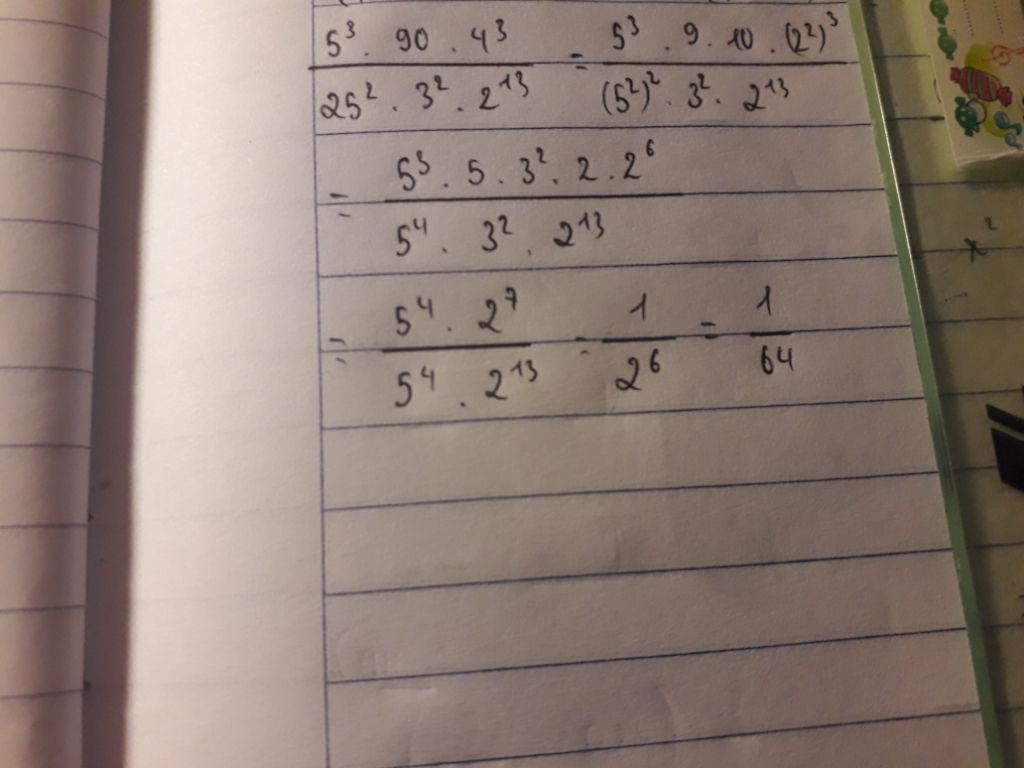 5³ · 90 · 4³ / 25² · 3² · 2¹³ = 5³ · 9 · 10 · (2²)³ / (5²)² · 3² · 2¹³
= 5³ · 5 · 3² · 2 · 2⁶ / 5⁴ · 3² · 2¹³
= 5⁴ · 2⁷ / 5⁴ · 2¹³ = 1 / 2⁶ = 1 / 64
x²